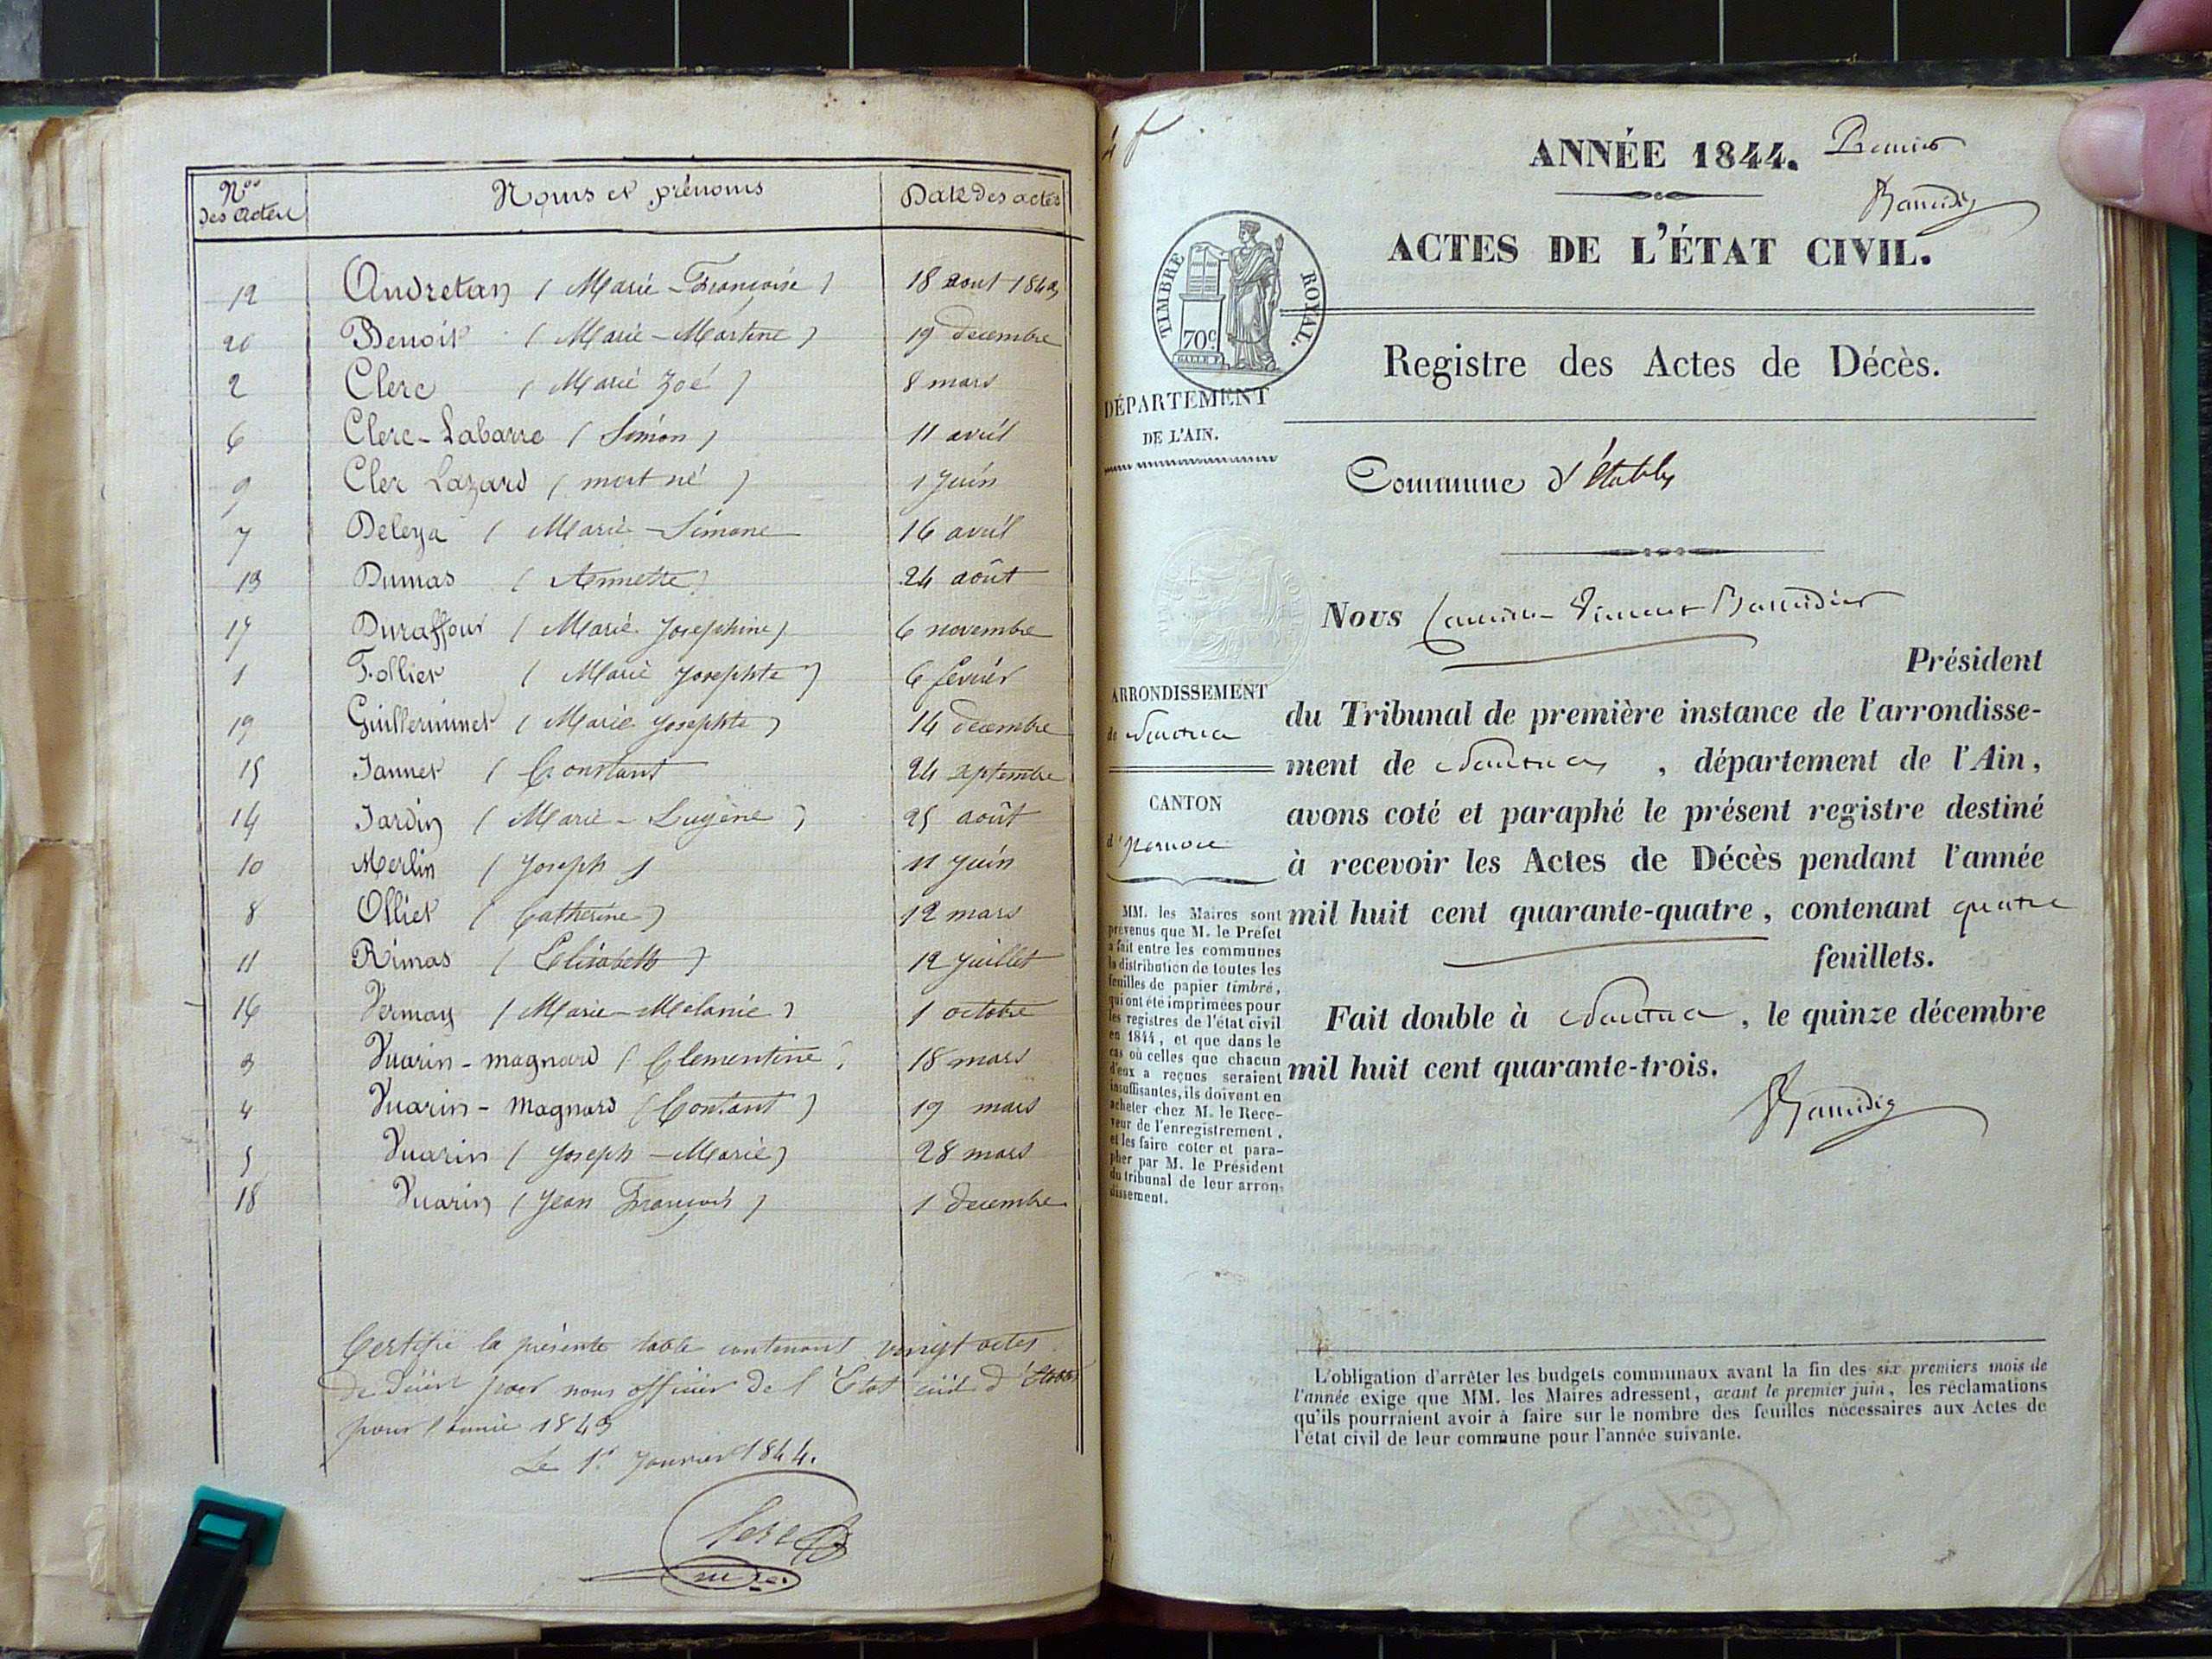 Nos des actes Noms et prénoms Date des actes
12 Andretan ( Marie-Françoise ) 18 aout 1843
20 Benoit ( Marie-Martine ) 19 decembre
2 Clerc ( Marie Zoé ) 8 mars
6 Clerc-Labarre ( Simon ) 11 avril
9 Cler Lazard ( mort né ) 1 Juin
7 Deleya ( Marie-Simone 16 avril
13 Dumas ( Annette ) 24 août
17 Duraffour ( Marie Josephine ) 6 novembre
1 Follier ( Marie Josephte ) 6 fevrier
19 Guillermmet ( Marie Josephte ) 14 decembre
15 Jannet ( Constant 24 septembre
14 Jardin ( Marie-Eugène ) 25 août
10 Merlin ( Joseph ) 11 juin
8 Olliet ( Catherine ) 12 mars
11 Rimas ( Elisabeth ) 12 Juillet
16 Vermay ( Marie-Melanie ) 1 octobre
3 Vuarin-magnard ( Clementine ) 18 mars
4 Vuarin-Magnard ( Contant ) 19 mars
5 Vuarin ( Joseph-Marie ) 28 mars
18 Vuarin ( Jean François ) 1 decembre
Certifié la présente table contenant vingt actes
de Décès par nous officier de l'Etat civil d'Etables
pour l'année 1843
Le 1er Janvier 1844.
Clerc
ANNÉE 1844. Premier
ACTES DE L'ÉTAT CIVIL.
TIMBRE ROYAL.
70c
Registre des Actes de Décès.
DÉPARTEMENT
DE L'AIN.
Commune d'Étables
Nous Vincent
Président
ARRONDISSEMENT
de Nantua
du Tribunal de première instance de l'arrondisse-
ment de Nantua, département de l'Ain,
CANTON
d'Izernore
avons coté et paraphé le présent registre destiné
à recevoir les Actes de Décès pendant l'année
mil huit cent quarante-quatre, contenant quatre
feuillets.
Fait double à Nantua, le quinze décembre
mil huit cent quarante-trois.
MM. les Maires sont
prévenus que M. le Préfet
a fait entre les communes
la distribution de toutes les
feuilles de papier timbré,
qui ont été imprimées pour
les registres de l'état civil
en 1844, et que dans le
cas où celles que chacun
d'eux a reçues seraient
insuffisantes, ils doivent en
acheter chez M. le Rece-
veur de l'enregistrement,
et les faire coter et para-
pher par M. le Président
du tribunal de leur arron-
dissement.
L'obligation d'arrêter les budgets communaux avant la fin des six premiers mois de
l'année exige que MM. les Maires adressent, avant le premier juin, les réclamations
qu'ils pourraient avoir à faire sur le nombre des feuilles nécessaires aux Actes de
l'état civil de leur commune pour l'année suivante.